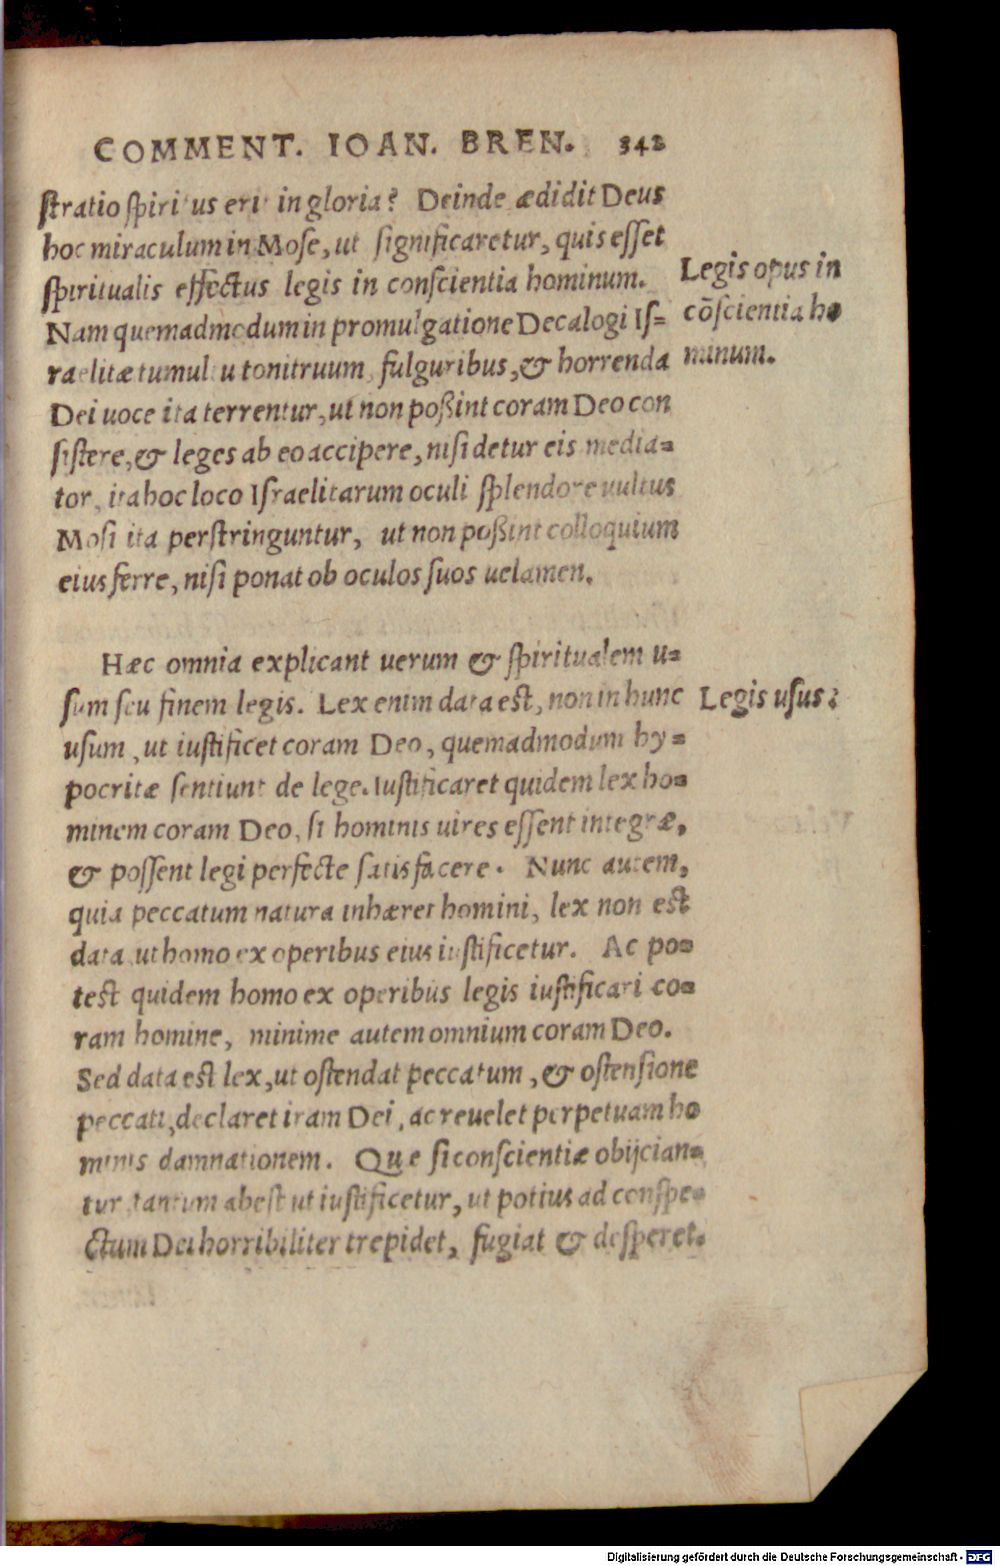 COMMENT. IOAN. BREN. 342
ſtratio ſpiritus erit in gloria? Deinde ædidit Deus
hoc miraculum in Moſe, ut ſignificaretur, quis eſſet
ſpiritualis effectus legis in conſcientia hominum.
Legis opus in
cõſcientia ho
minum.
Nam quemadmodum in promulgatione Decalogi Iſ=
raelitæ tumultu tonitruum, fulguribus, & horrenda
Dei uoce ita terrentur, ut non poßint coram Deo con
ſiſtere, & leges ab eo accipere, niſi detur eis media=
tor, ita hoc loco Iſraelitarum oculi ſplendore uultus
Moſi ita perſtringuntur, ut non poßint colloquium
eius ferre, niſi ponat ob oculos ſuos uelamen.
Hæc omnia explicant uerum & ſpiritualem u=
ſum ſeu finem legis. Lex enim data eſt, non in hunc
Legis uſus:
uſum, ut iuſtificet coram Deo, quemadmodum hy=
pocritæ ſentiunt de lege. Iuſtificaret quidem lex ho=
minem coram Deo, ſi hominis uires eſſent integræ,
& poſſent legi perfecte ſatisfacere. Nunc autem,
quia peccatum natura inhæret homini, lex non eſt
data, ut homo ex operibus eius iuſtificetur. Ac po=
teſt quidem homo ex operibus legis iuſtificari co=
ram homine, minime autem omnium coram Deo.
Sed data eſt lex, ut oſtendat peccatum, & oſtenſione
peccati, declaret iram Dei, ac reuelet perpetuam ho
minis damnationem. Quæ ſi conſcientiæ obijcian=
tur, tantum abeſt ut iuſtificetur, ut potius ad conſpe=
ctum Dei horribiliter trepidet, fugiat & deſperet.
Digitalisierung gefördert durch die Deutsche Forschungsgemeinschaft - DFG